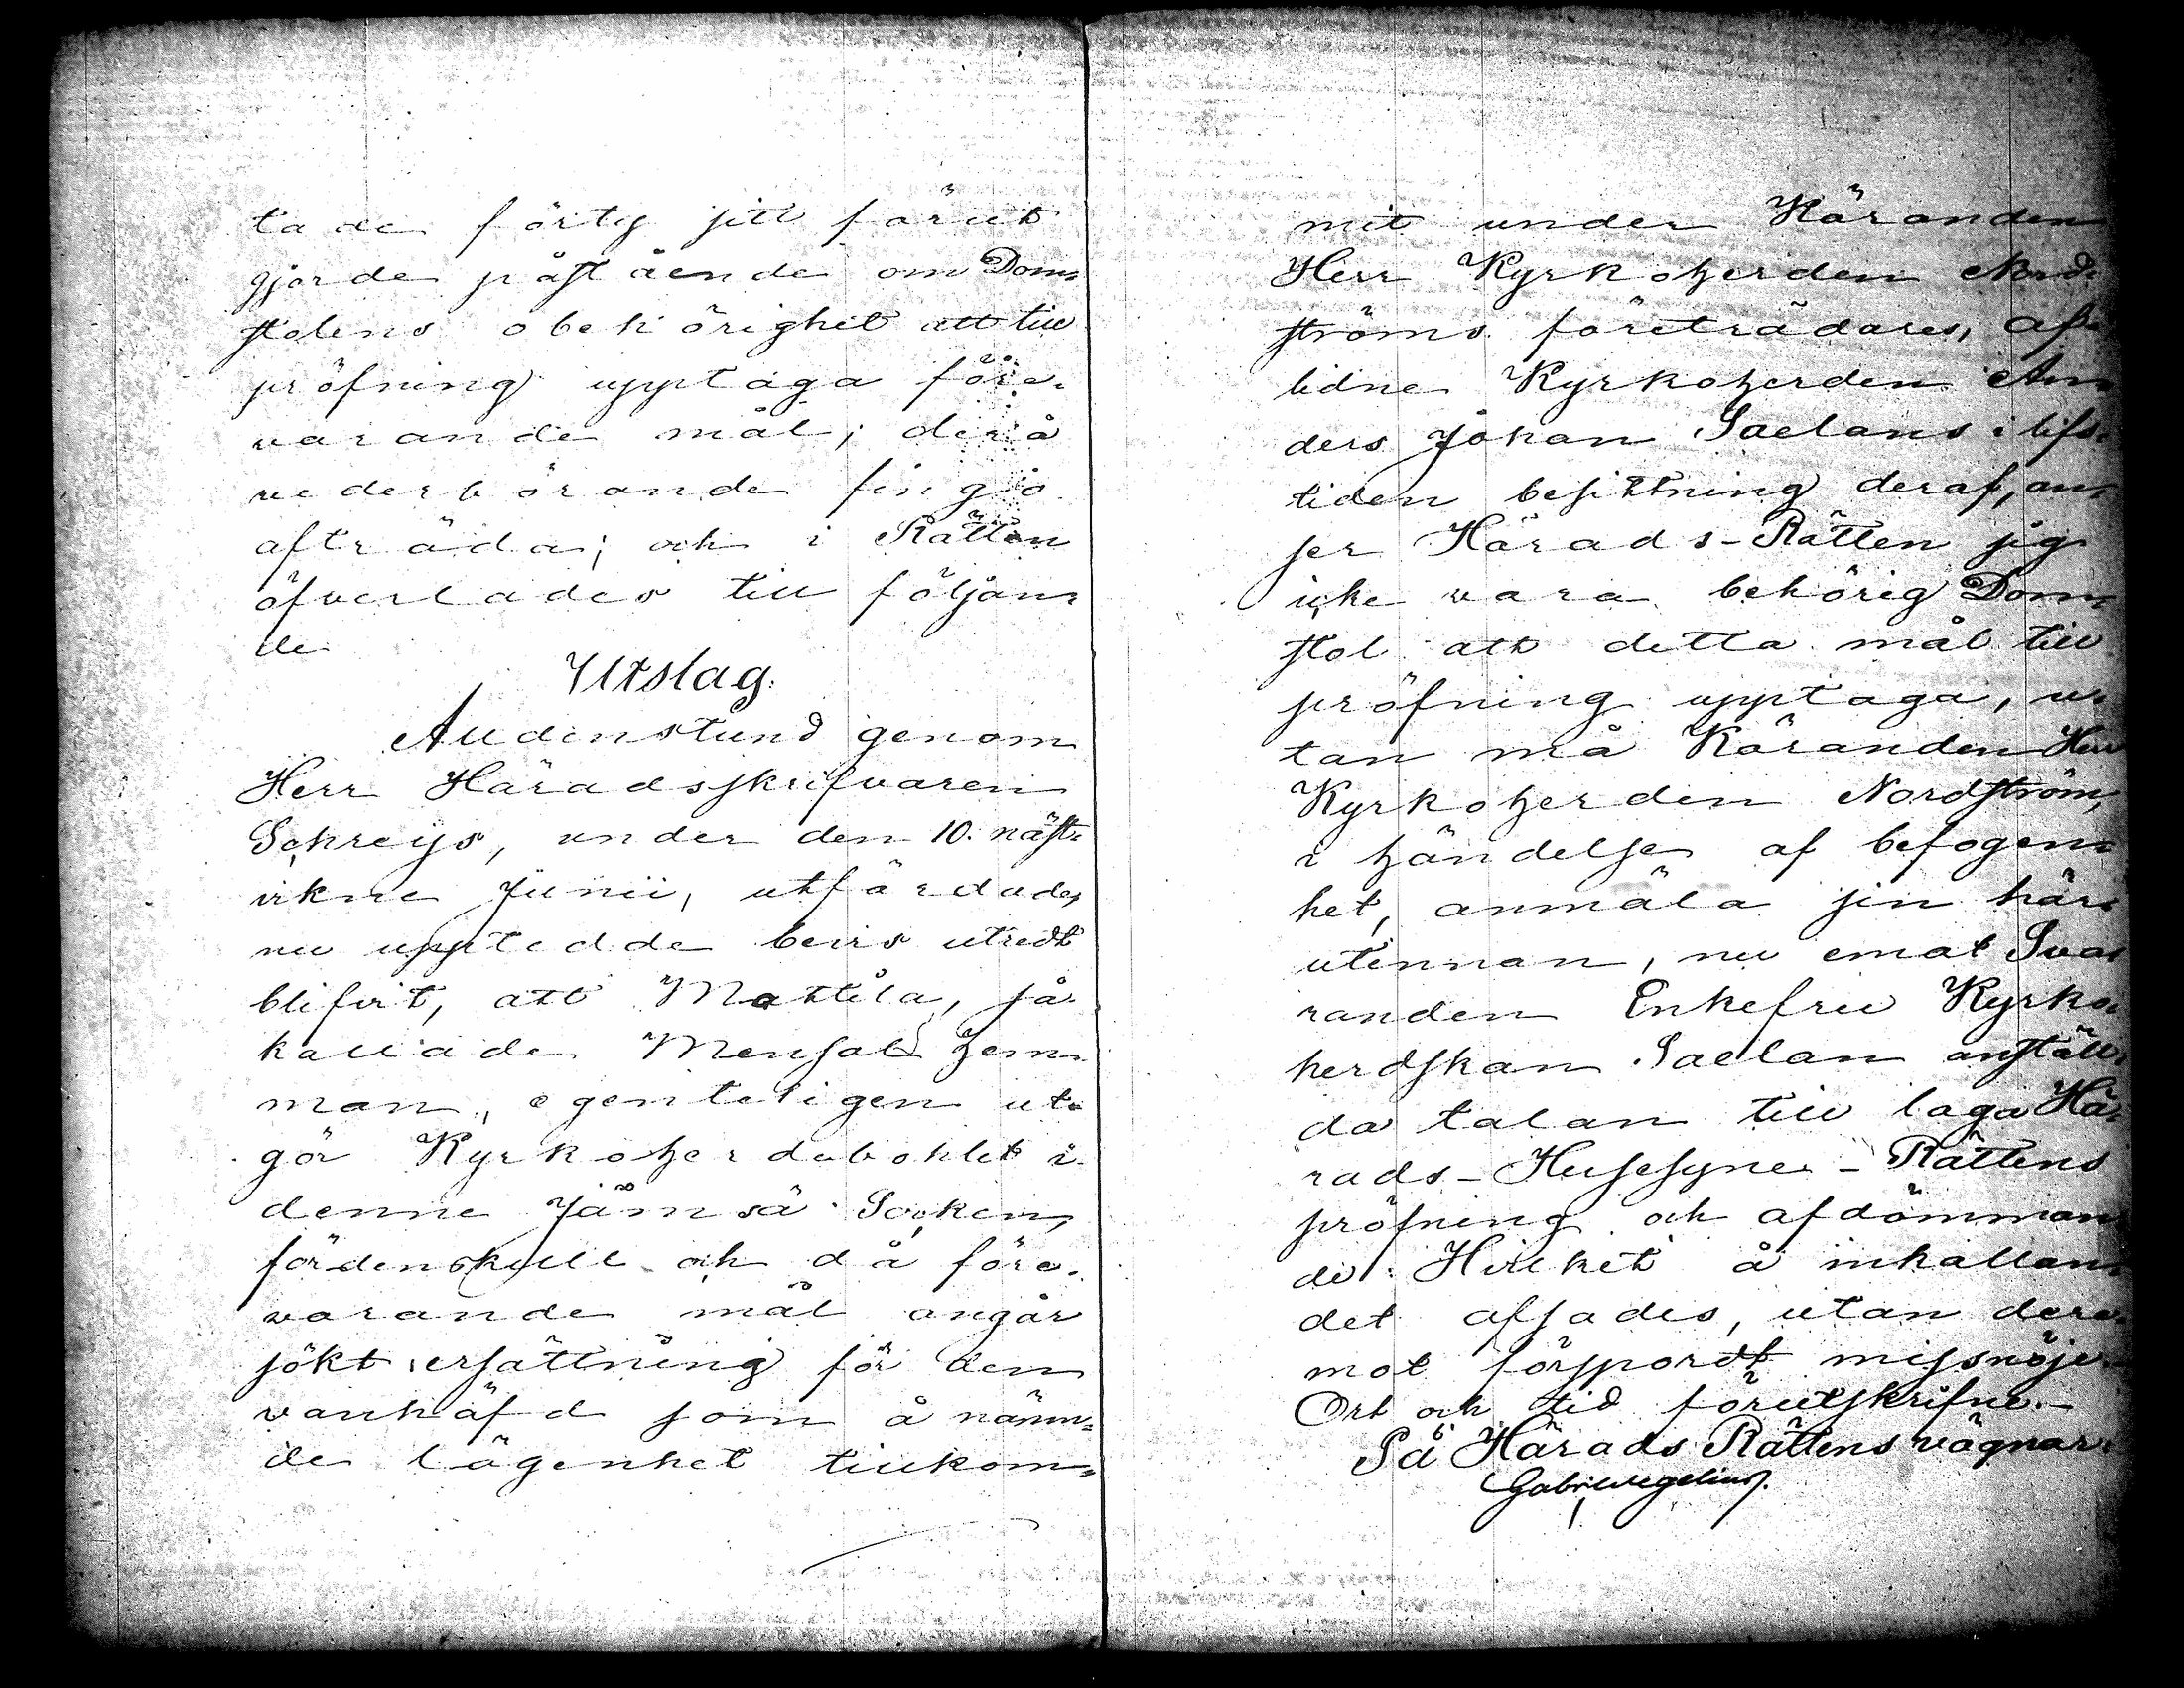 tade förty sitt förut
gjorde påstående om Dom-
stolens obehörighet att till
pröfning upptaga före-
varande mål; derå
vederbörande fingo
afträda; och i Rätten
öfverlades till följan-
de
Utslag.
Alldenstund genom
Herr Häradsskrifvaren
Schreijs, under den 10. näst-
vikne Junii, utfärdade,
nu upptedde bevis utredt
blifvit, att Mattila, så
kallade Mensal hem-
man, egenteligen ut-
gör Kyrkoherdebohlet i
denne Jämsä Socken,
fördenskull och då före-
varande mål angår
sökt ersättning för den
vanhäfd som å nämn-
de lägenhet tillkom-
mit under Käranden
Herr Kyrkoherden Nord-
ströms företrädares, af-
lidne Kyrkoherden An-
ders Johan Saelans i lifs-
tiden besittning deraf, an-
ser Härads-Rätten sig
icke vara behörig Dom-
stol att detta mål till
pröfning upptaga, u-
tan må Käranden Herr
Kyrkoherden Nordström,
i händelse af befogen-
het, anmäla sin här-
utinnan, nu emot Sva-
randen Enkefru Kyrko-
herdskan Saelan anställ-
da talan till laga Hä-
rads-Husesyne-Rättens
pröfning och afdömman-
de. Hvilket å inkallan-
det afsades, utan dere-
mot förspordt missnöje.
Ort och tid förutskrifne.-
På Härads Rättens vägnar:
Gabr Wegelius.